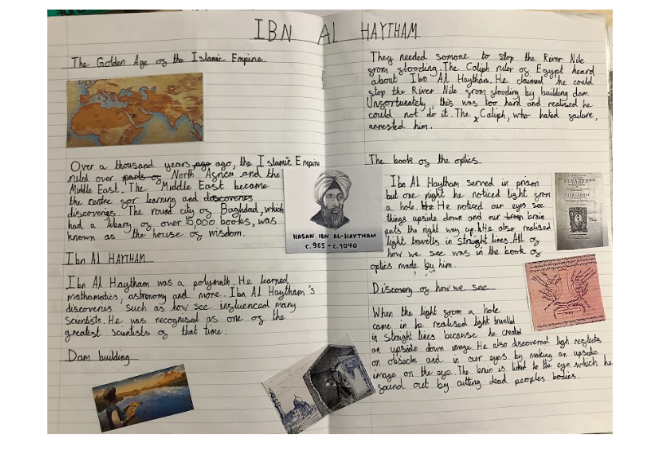 IBN AL HAYTHAM
The Golden Age of the Islamic Empire
Over a thousand years ago ago, the Islamic Empire
ruled over parts of North Africa and the
Middle East. The Middle East became
the centre for learning and discoveries
discoveries. The round city of Baghdad, which
had a libary of over 15,000 books, was
known as the house of wisdom.
Ibn Al HAYTHAM
Ibn Al Haytham was a polymath. He learned
mathematics, astronomy and more. Ibn Al Haytham's
discoveries such as how see influenced many
scientists. He was recognised as one of the
greatest scientists of that time.
Dam building
HASAN IBN AL-HAYTHAM
C.965 - C.1040
They needed somone to stop the River Nile
from flooding. The Caliph ruler of Egypt heard
about Ibn Al Haytham. He claimed he could
stop the River Nile from flooding by building dam.
Unfortunately, this was too hard and realised he
could not do it. The Caliph, who hated failure,
arrested him.
The book of the optics
Ibn Al Haytham served in prison
but one night he noticed light from
a hole. He noticed our eyes see
things upside down and our brain
puts the right way up. He also realised
light travells in straight lines. All of
how we see was in the book of
optics made by him.
Discovery of how we see
When the light from a hole
came in he realised light travelled
in straight lines because he created
an upside down image. He also discovered ligh reflects
on obsacls and in our eyes by making an upside
image on the eye. The brain is linked to the eye which he
found out by cutting dead peoples bodies.